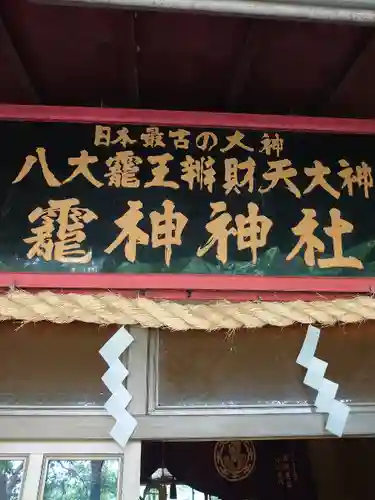 日本最古の大神
八大龗王辨財天大神
龗神神社